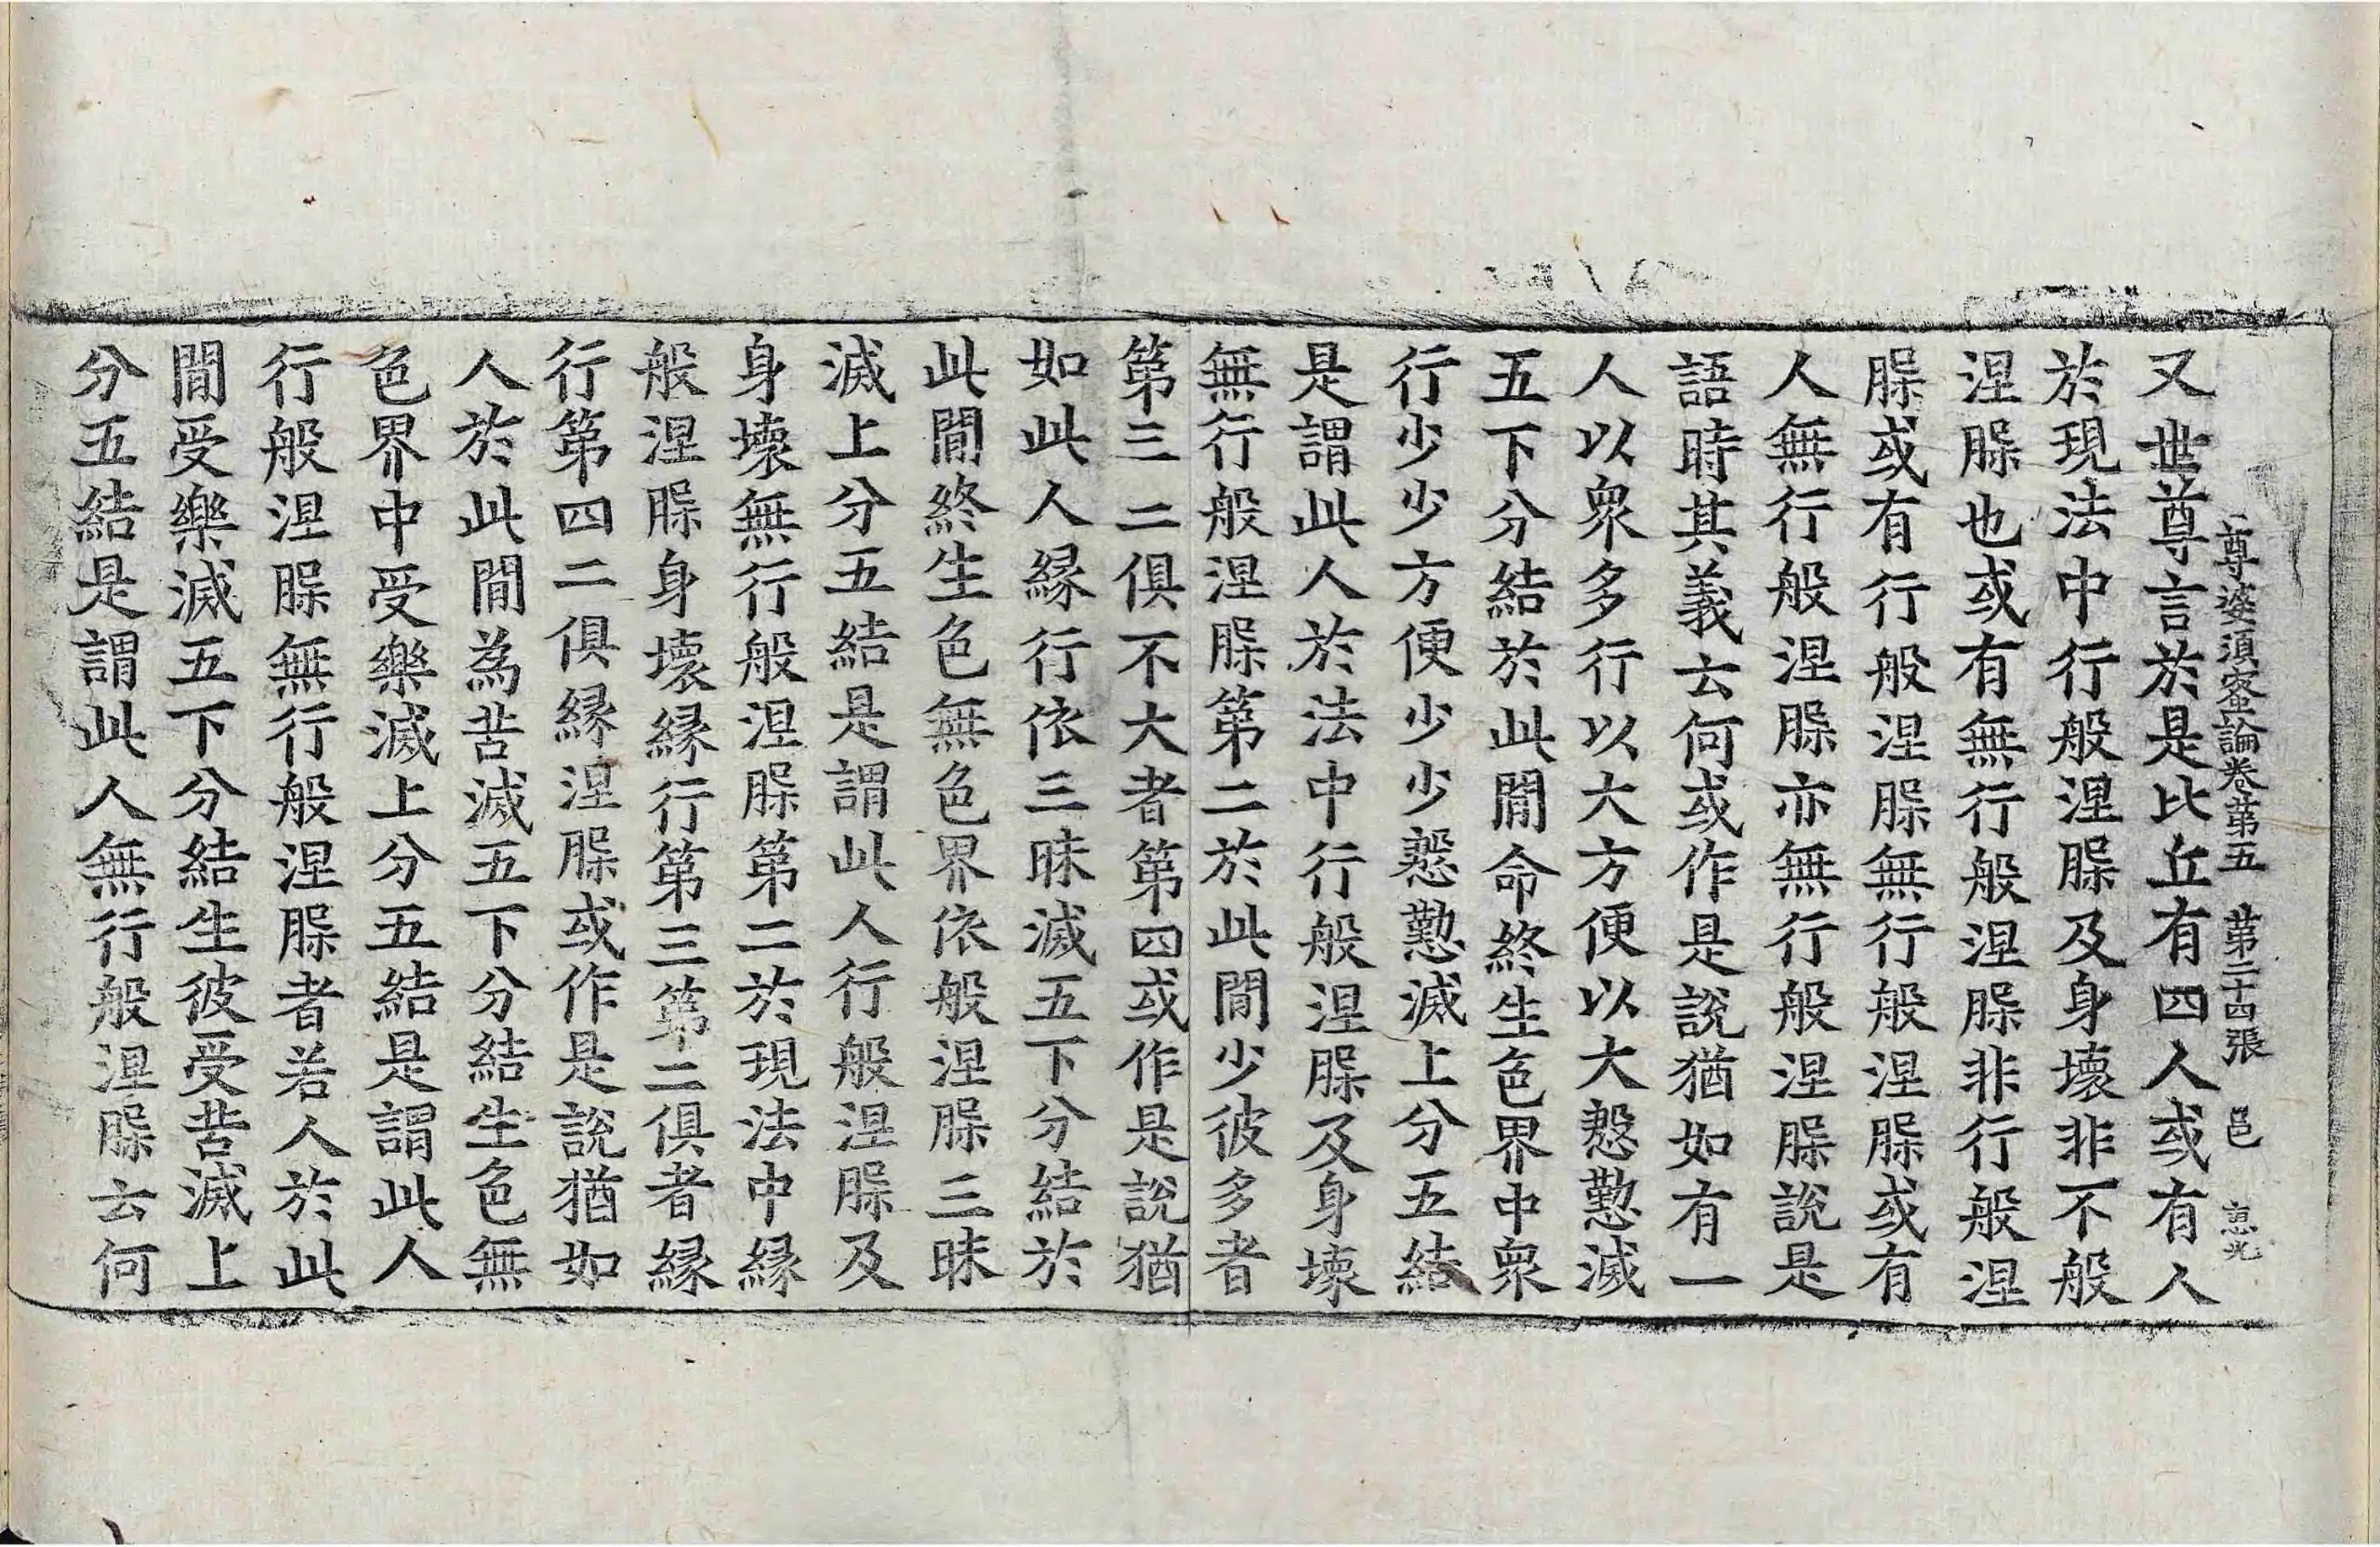 尊婆須蜜論卷第五 第二十四張 邑 惠光
又世尊言於是比丘有四人或有人
於現法中行般涅槃及身壞非不般
涅槃也或有無行般涅槃非行般涅
槃或有行般涅槃無行般涅槃或有
人無行般涅槃亦無行般涅槃說是
語時其義云何或作是說猶如有一
人以衆多行以大方便以大慇懃滅
五下分結於此間命終生色界中衆
行少少方便少少慇懃滅上分五結
是謂此人於法中行般涅槃及身壞
無行般涅槃第二於此間少彼多者
第三二俱不大者第四或作是說猶
如此人緣行依三昧滅五下分結於
此間終生色無色界依般涅槃三昧
滅上分五結是謂此人行般涅槃及
身壞無行般涅槃第二於現法中緣
般涅槃身壞緣行第三第二俱者緣
行第四二俱緣涅槃或作是說猶如
人於此間為苦滅五下分結生色無
色界中受樂滅上分五結是謂此人
行般涅槃無行般涅槃者若人於此
間受樂滅五下分結生彼受苦滅上
分五結是謂此人無行般涅槃云何